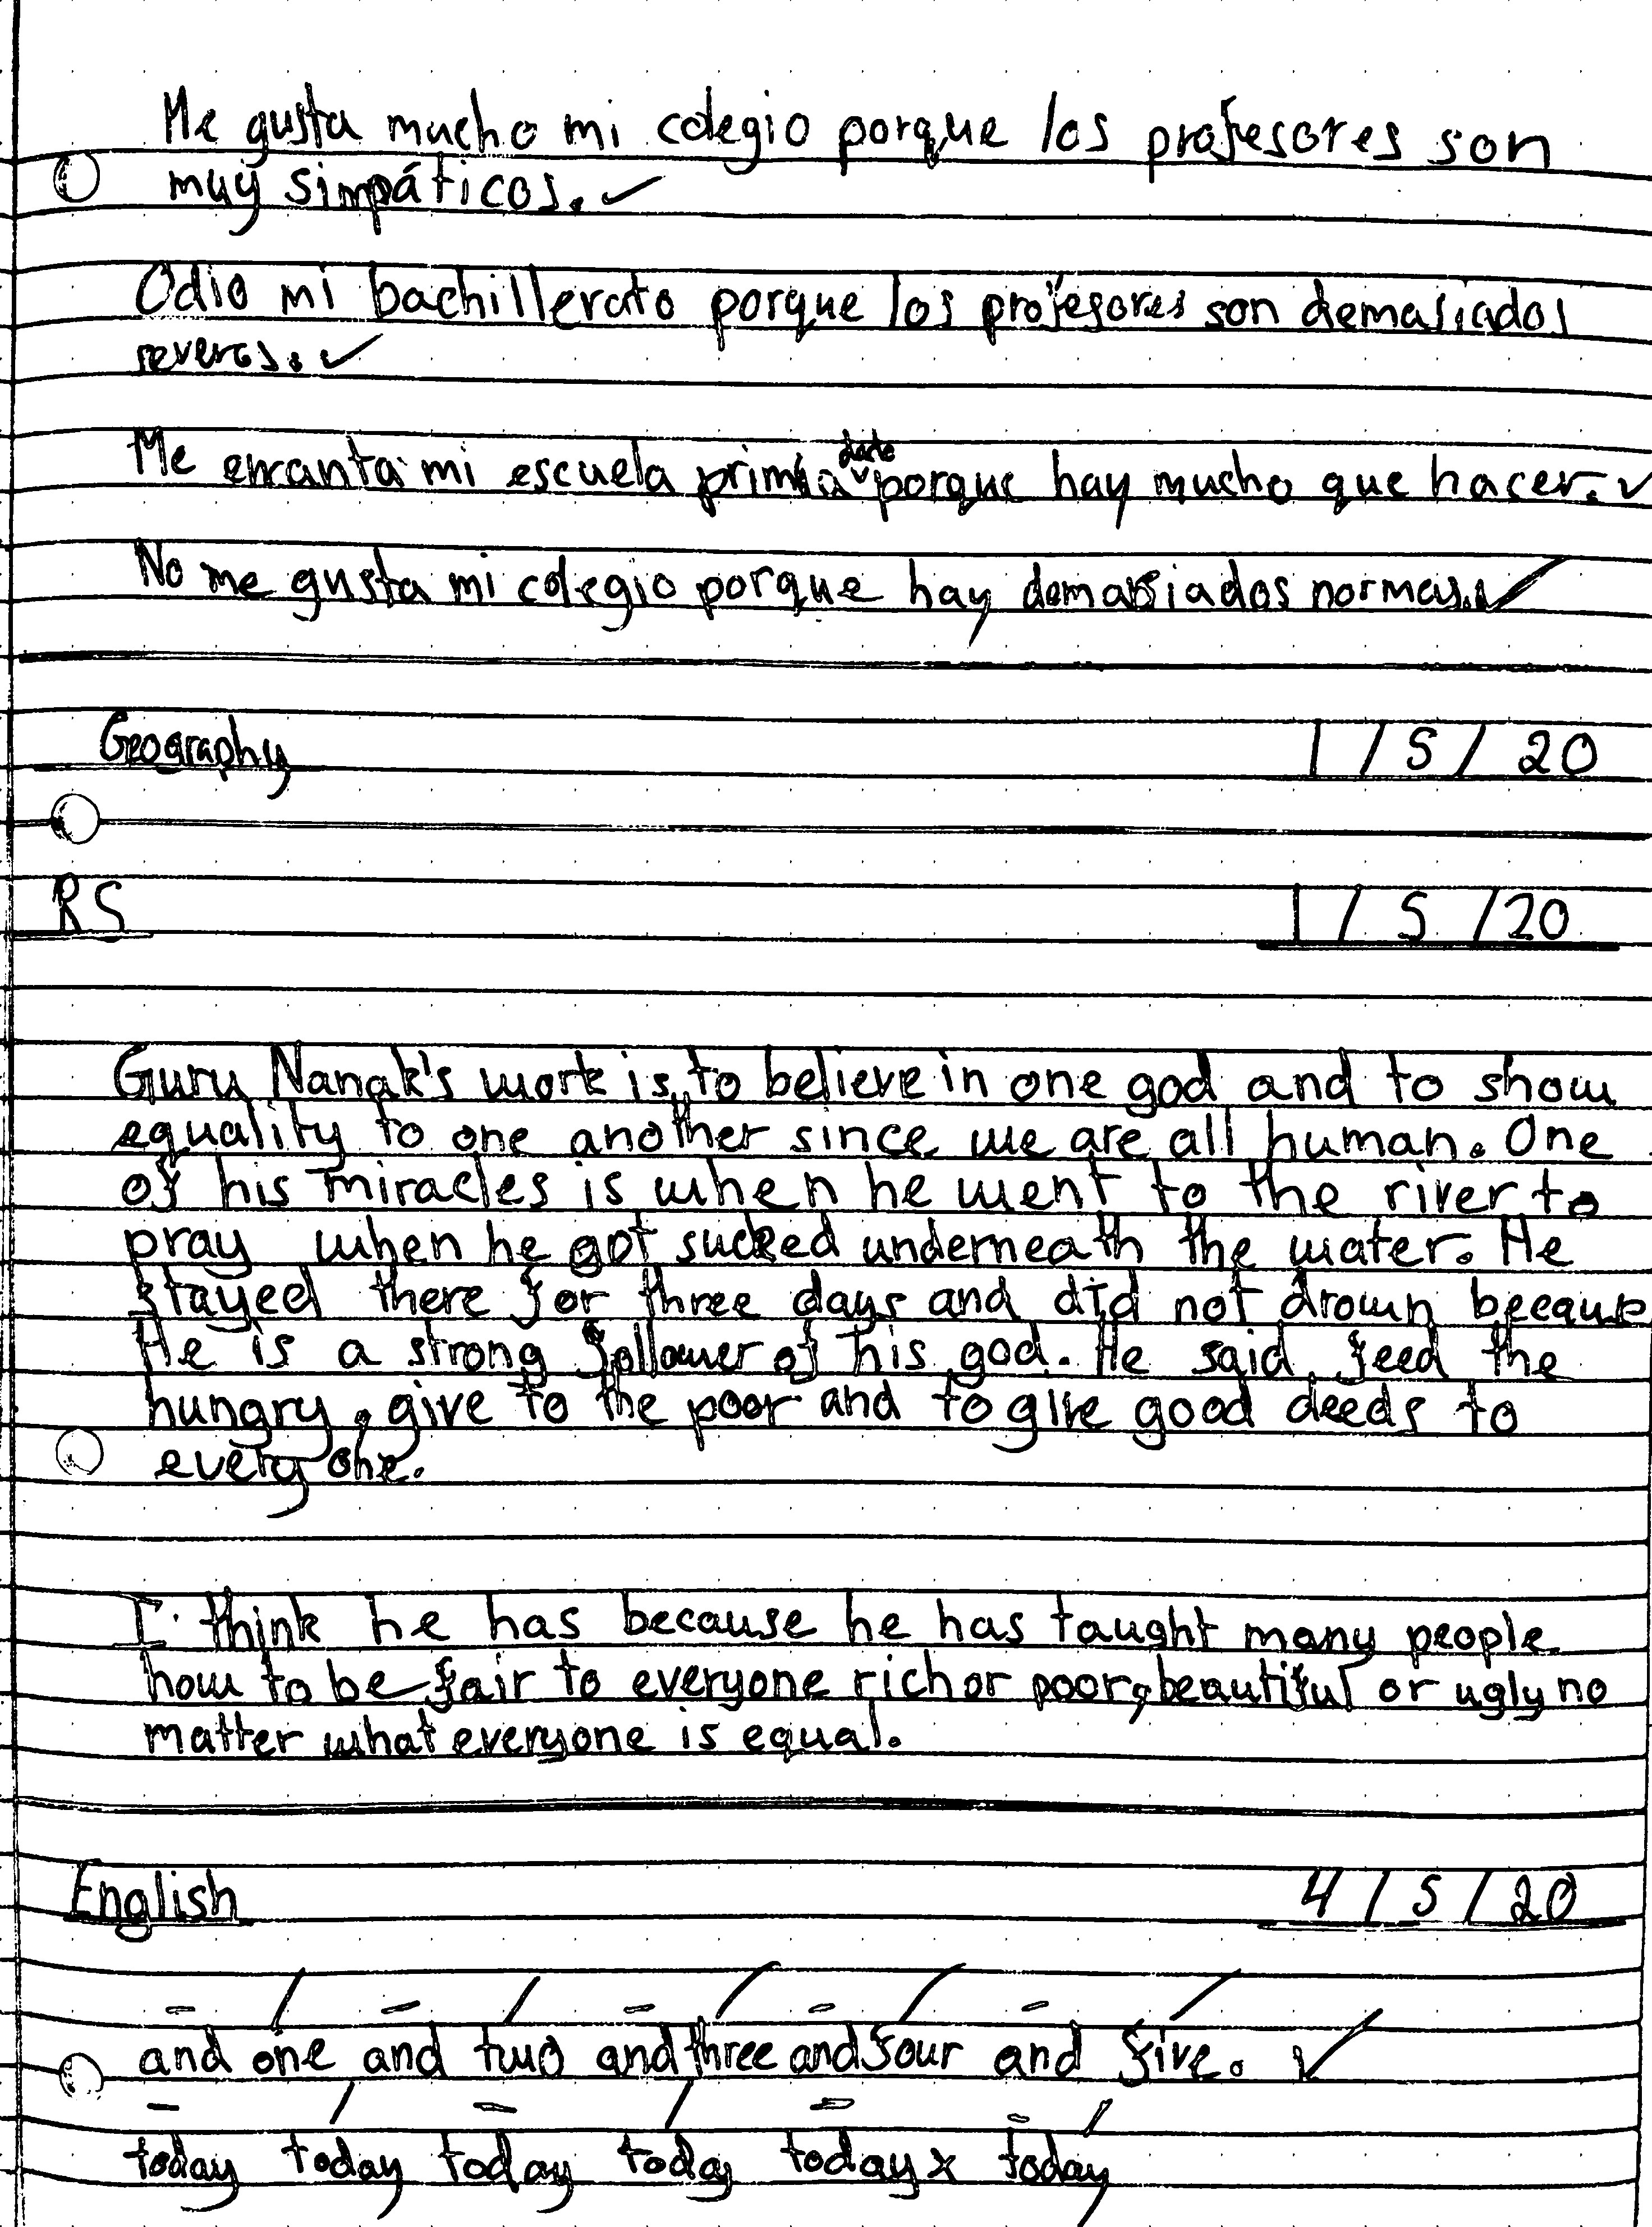 Me gusta mucho mi colegio porque los profesores son
muy simpáticos. ✓
Odio mi bachillerato porque los profesores son demasiados
severos. ✓
Me encanta mi escuela porque hay mucho que hacer. ✓
No me gusta mi colegio porque hay demasiados normas. ✓
Geography 1/5/20
RS 1/5/20
Guru Nanak's work is to believe in one god and to show
equality to one another since we are all human. One
of his miracles is when he went to the river to
pray when he got sucked underneath the water. He
stayed there for three days and did not drown becaus
He is a strong follower of his god. He said feed the
hungry, give to the poor and to give good deeds to
every one.
I think he has because he has taught many people
how to be fair to everyone rich or poor, beautiful or ugly no
matter what everyone is equal.
English 4/5/20
- / - / - / - / - /
and one and two and three and four and five. ✓
- / - / - - /
today today today today today x today